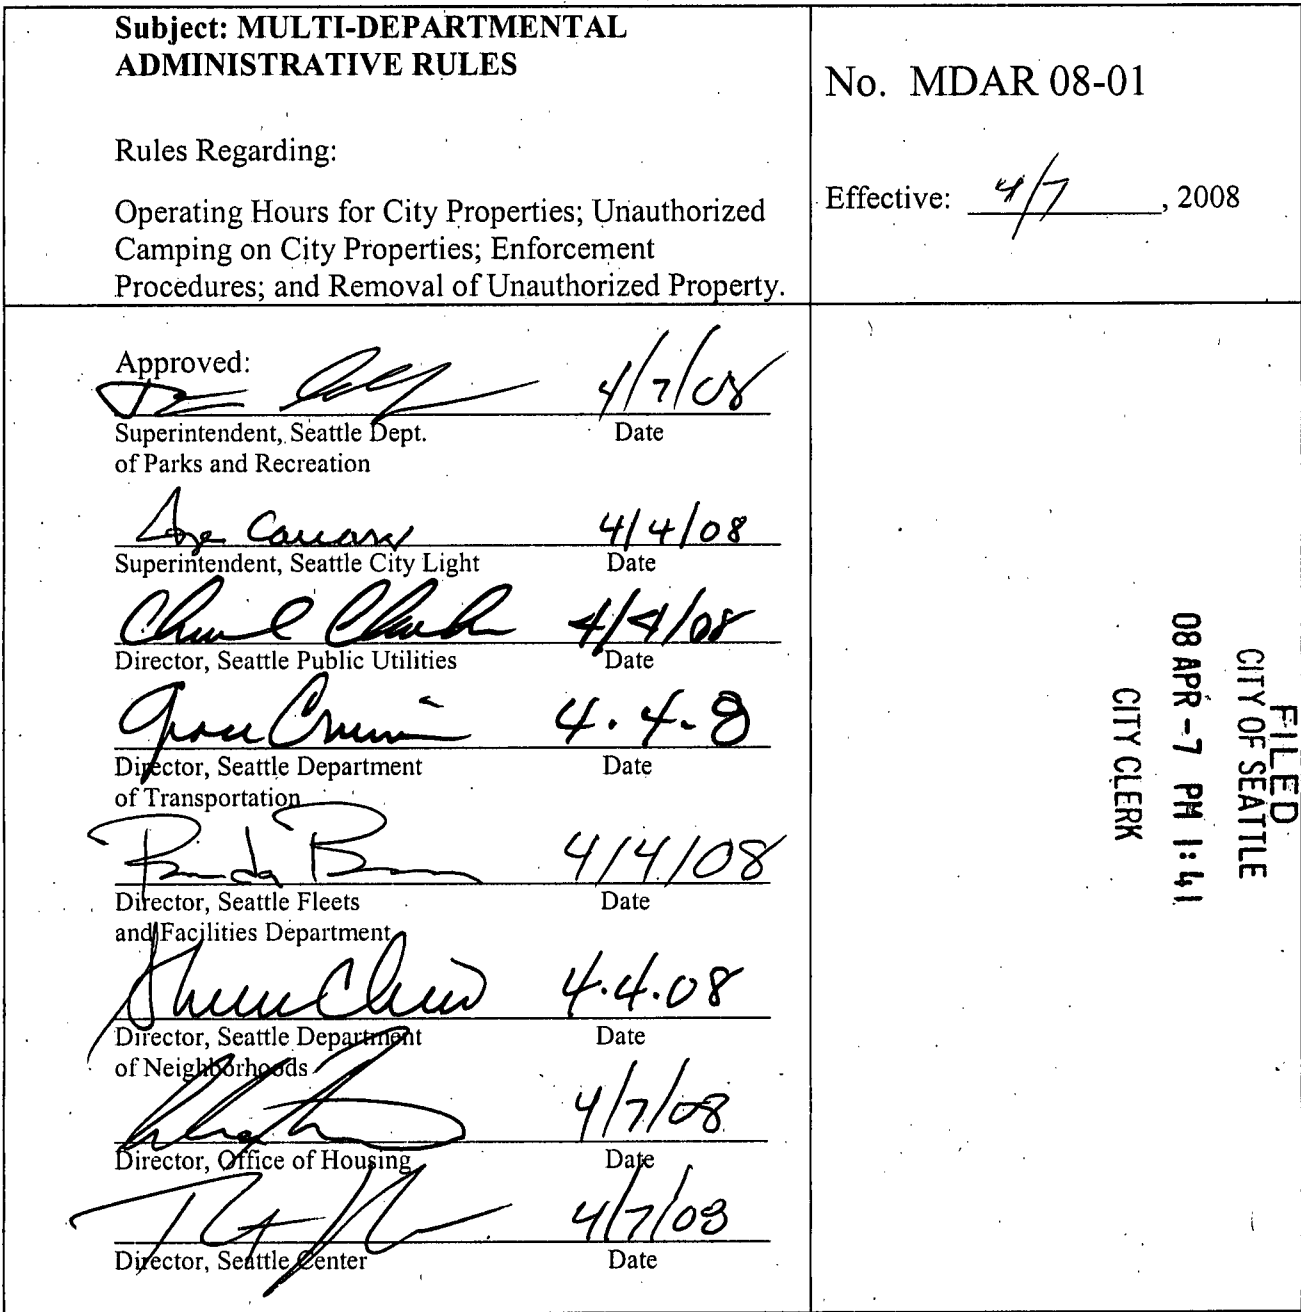 Subject: MULTI-DEPARTMENTAL
ADMINISTRATIVE RULES
Rules Regarding:
Operating Hours for City Properties; Unauthorized
Camping on City Properties; Enforcement
Procedures; and Removal of Unauthorized Property.
No. MDAR 08-01
Effective: 4/7, 2008
Approved:
4/7/08
Superintendent, Seattle Dept. Date
of Parks and Recreation
4/4/08
Superintendent, Seattle City Light Date
4/4/08
Director, Seattle Public Utilities Date
4.4.8
Director, Seattle Department Date
of Transportation
4/4/08
Director, Seattle Fleets Date
and Facilities Department
4.4.08
Director, Seattle Department Date
of Neighborhoods
4/7/08
Director, Office of Housing Date
4/7/08
Director, Seattle Center Date
FILED
CITY OF SEATTLE
08 APR -7 PM 1:41
CITY CLERK